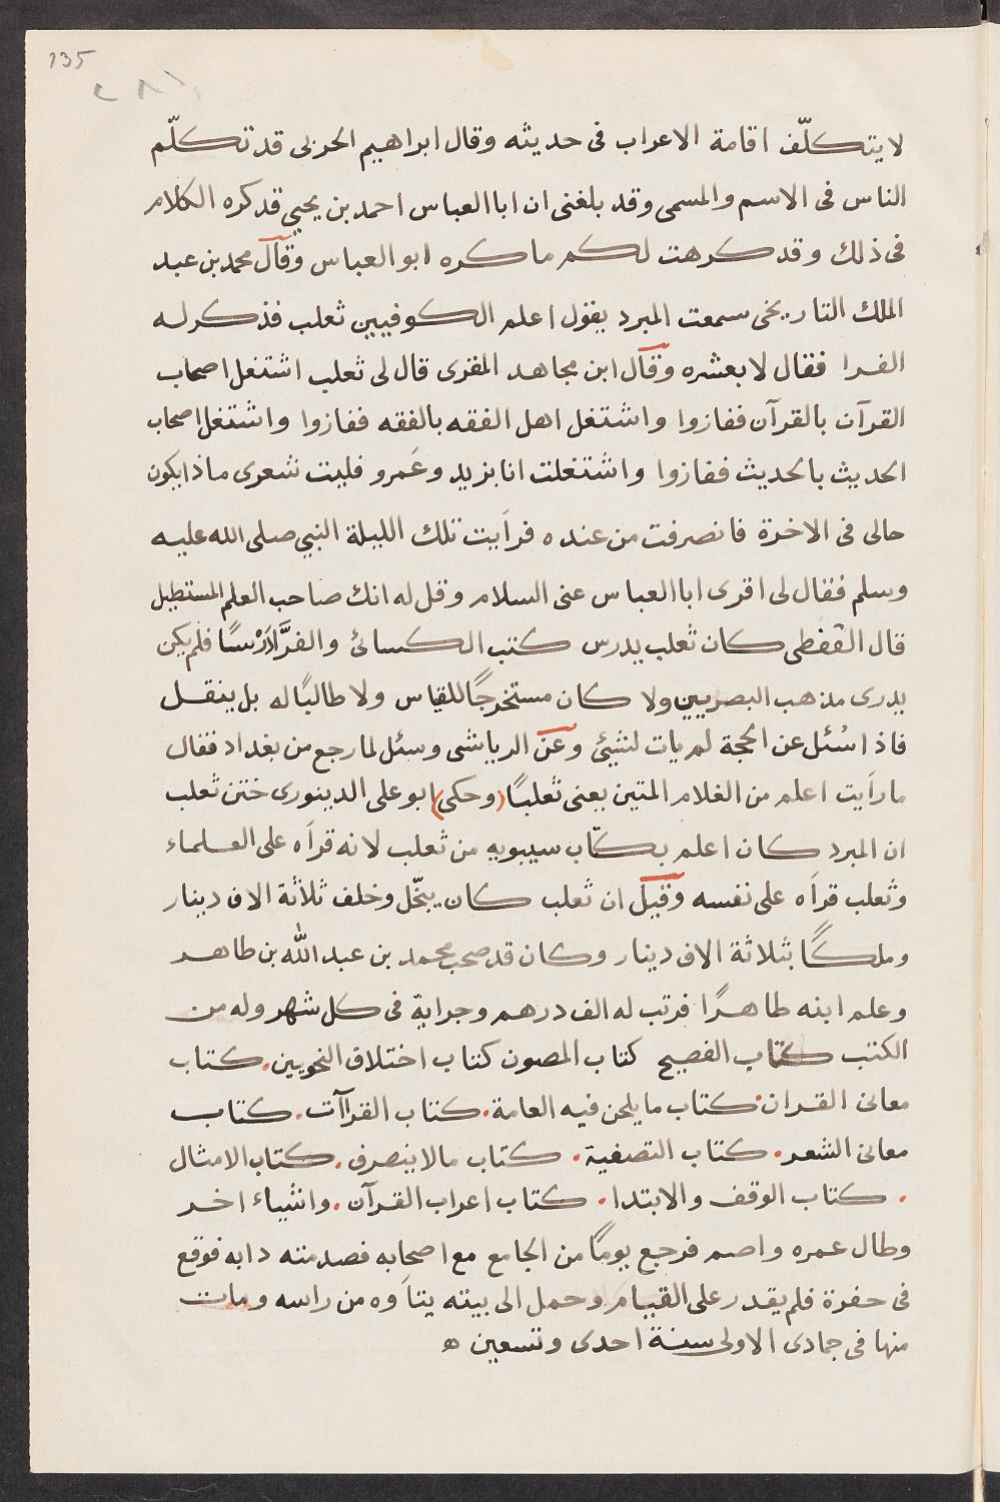 135
٢٨١
لا يتكلّف اقامة الاعراب فى حديثه وقال ابراهيم الحربى قد تكلّم
الناس فى الاسم والمسمى وقد بلغنى ان ابا العباس احمد بن يحيى قد كره الكلام
فى ذلك وقد كرهت لكم ما كره ابو العباس وقال محمد بن عبد
الملك التاريخى سمعت المبرد يقول اعلم الكوفيين ثعلب فذكر له
الفرا فقال لا بعشره وقال ابن مجاهد المقرى قال لى ثعلب اشتغل اصحاب
القرآن بالقرآن ففازوا واشتغل اهل الفقه بالفقه ففازوا واشتغل اصحاب
الحديث بالحديث ففازوا واشتغلت انا بزيد وعَمرو فليت شعرى ماذا يكون
حالى فى الاخرة فانصرفت من عنده فرأيت تلك الليلة النبي صلى الله عليه
وسلم فقال لى اقرى ابا العباس عنى السلام وقل له انك صاحب العلم المستطيل
قال القفطى كان ثعلب يدرس كتب الكسائ والفرَّا دَرْسًا فلم يكن
يدرى مذهب البصريين ولا كان مستخرجًا للقياس ولا طالبًا له بل ينقل
فاذا سُئل عن الحجة لم يات لشيئ وعن الرياشى وسئل لما رجع من بغداد فقال
ما رأيت اعلم من الغلام المتين يعنى ثعلبًا (وحكى) ابو على الدينورى ختن ثعلب
ان المبرد كان اعلم بكتاب سيبويه من ثعلب لانه قرأه على العلماء
وثعلب قرأه على نفسه وقيل ان ثعلب كان يبخّل وخلف ثلاثة الاف دينار
وملكًا بثلاثة الاف دينار وكان قد صحب محمد بن عبد الله بن طاهر
وعلم ابنه طاهرًا فرتب له الف درهم وجراية فى كل شهر وله من
الكتب كتاب الفصيح كتاب المصون كتاب اختلاف النحويين. كتاب
معانى القران. كتاب ما يلحن فيه العامة. كتاب القراآت. كتاب
معانى الشعر. كتاب التصفية. كتاب ما لا ينصرف. كتاب الامثال
. كتاب الوقف والابتدا. كتاب اعراب القرآن. واشياء اخر
وطال عمره واصم فرجع يومًا من الجامع مع اصحابه فصدمته دابه فوقع
فى حفرة فلم يقدر على القيام وحمل الى بيته يتأوه من راسه ومات
منها فى جمادى الاولى سنة احدى وتسعين ه